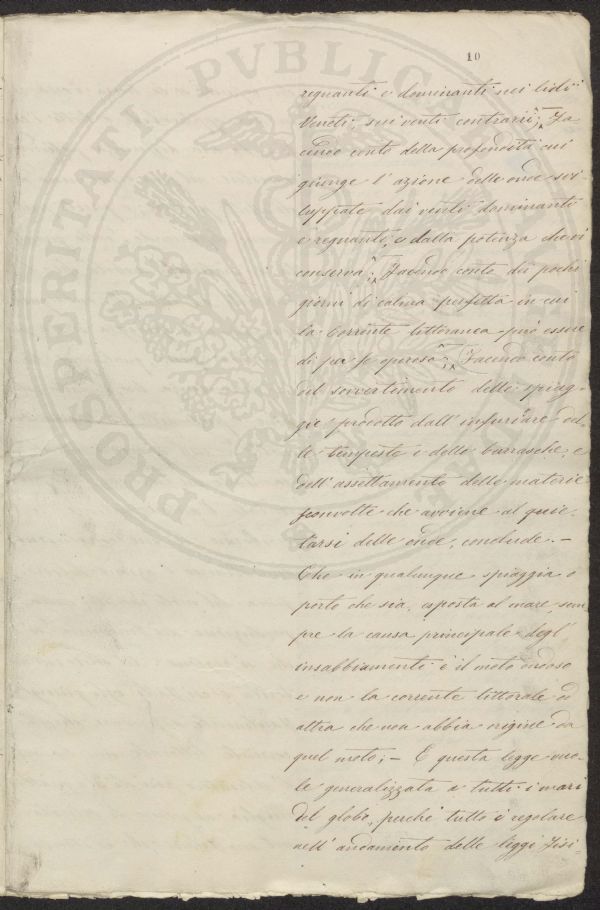 PROSPERITATI PVBLICAE
10
regnanti e dominanti nei lidi
Veneti, sui venti contrarii; Fa-
cendo conto della profondità cui
giunge l'azione delle onde svi
luppate dai venti dominanti
e regnanti, e dalla potenza che vi
conserva; Facendo conto dei pochi
giorni di calma perfetta in cui
la corrente littoranea può essere
di per se operosa; Facendo conto
del sovvertimento delle spiag-
gie prodotto dall'infuriare del-
le tempeste e delle burrasche, e
dell'assettamento delle materie
sconvolte che avviene al quie-
tarsi delle onde, conclude. –
Che in qualunque spiaggia o
porto che sia, esposta al mare, sem
pre la causa principale degl'
insabbiamenti è il moto ondoso
e non la corrente littorale od
altra che non abbia origine da
quel moto; – E questa legge vuo-
le generalizzata a tutti i mari
del globo, perché tutto è regolare
nell'andamento delle leggi fisi-